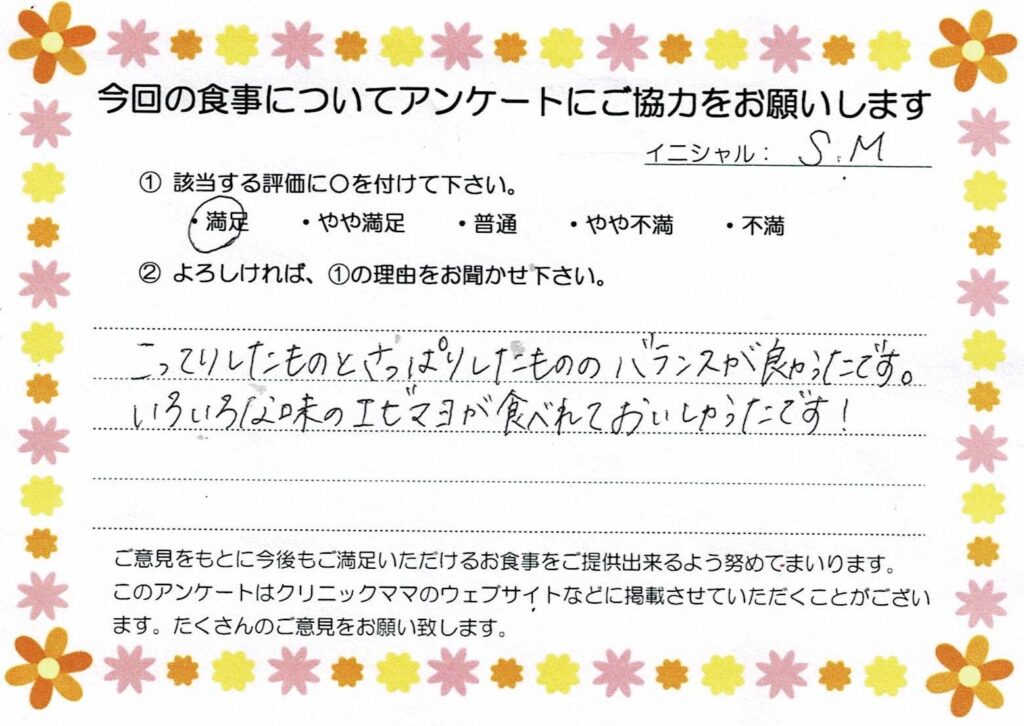 今回の食事についてアンケートにご協力をお願いします
イニシャル： S.M
① 該当する評価に〇を付けて下さい。
・満足 ・やや満足 ・普通 ・やや不満 ・不満
② よろしければ、①の理由をお聞かせ下さい。
こってりしたものとさっぱりしたもののバランスが良かったです。
いろいろな味のエビマヨが食べれておいしかったです！
ご意見をもとに今後もご満足いただけるお食事をご提供出来るよう努めてまいります。
このアンケートはクリニックママのウェブサイトなどに掲載させていただくことがござい
ます。たくさんのご意見をお願い致します。